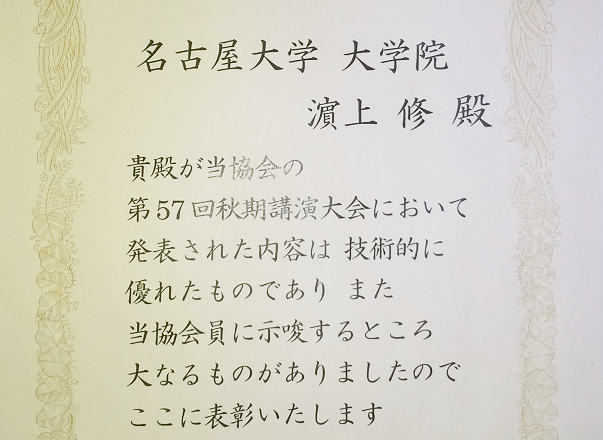 名古屋大学 大学院
濵上 修 殿
貴殿が当協会の
第57回秋期講演大会において
発表された内容は 技術的に
優れたものであり また
当協会員に示唆するところ
大なるものがありましたので
ここに表彰いたします